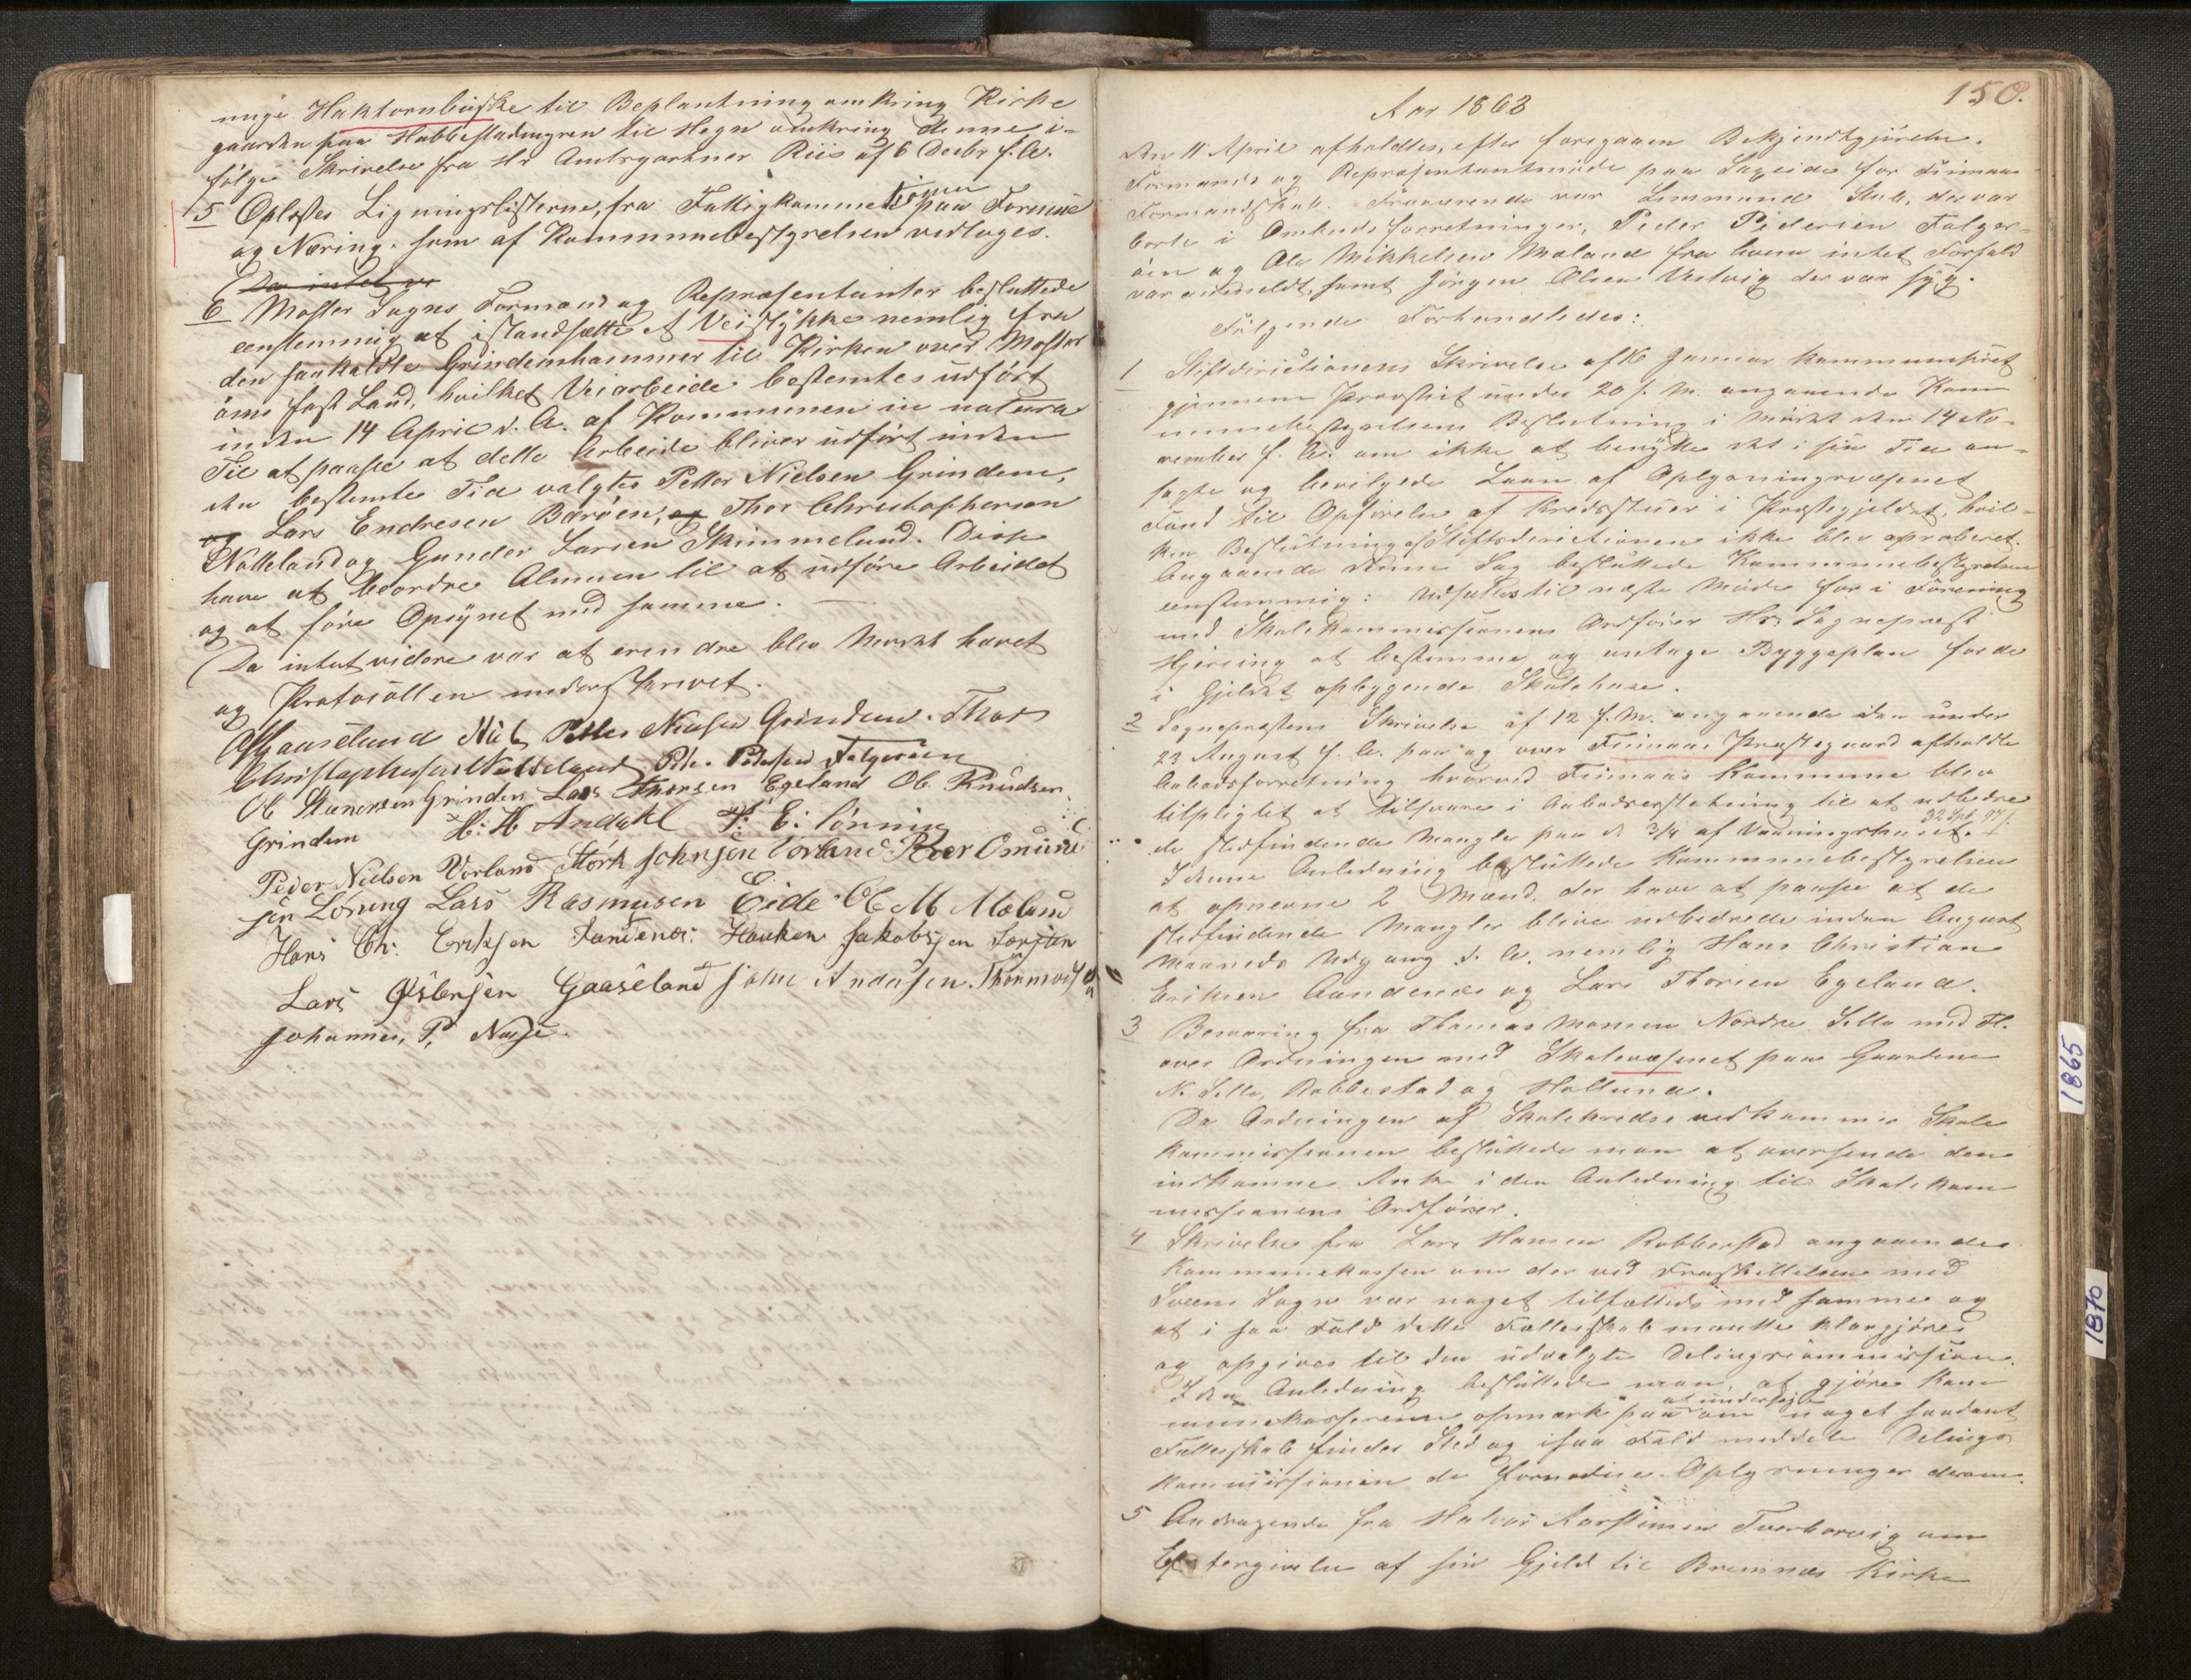 nuge Haktornbuske til Beplantning omkring Kirke
gaarden paa Habbestadmyren til Hegn omkring denne i-
følge Skrivelse fra Hr Amtsgartner Riis af 6 Decbr f. A.
5 Oplæstes Ligningslisterne, fra Fattigkommissionen paa Formue
og Næring, som af Kommunebestyrelsen vedtoges.
Da intet vi
6 Moster Sogns Formænd og Repræsentanter besluttede
eenstemmig at istandsætte et Veistykke nemlig fra
den saakaldte Grindemhammer til Kirken over Moster
øens fast Land, hvilket Veiarbeide bestemtes udført
inden 14 April d. A. af Kommunen in natura
Til at paasee at dette Arbeide bliver udført inden
den bestemte Tid valgtes Petter Nielsen Grindem,
og Lars Endresen Bærøen, og Thor Christophersen
Nøtteland og Gunder Larsen Skimmeland. Disse
have at beordre Almuen til at udføre Arbeidet
og at føre Opsynet med samme.
Da intet videre var at erindre blev Mødet hævet
og Protocollen underskrevet.
Gaaseland Petter Nielsen Grindem. Thor
Christophersen Nøtteland Peder Pedersen Folgerøen
Ol Steenersen Grindem Lars Thorsen Egeland Ole Knudsen
Grindem H. H. Andahl T. E. Lønning
Peder Nielsen Vorland Størk Johnsen Vorland Peer Omund
sen Løning Lars Rasmusen Eide Ole M Mæland
Hans Chr. Eriksen Aandenes. Haaken Jakobsen
Lars Østensen Gaaseland John Andersen
Johannes, P, Nesse.
150.
Aar 1863
Den 11 April afholdtes, efter foregaaen Bekjendtgjørelse.
Formands og Repræsentantmøde paa Sageide for Finnaas
Formandskab. Fraværende var Lensmand Stub, der var
borte i Embedsforretninger, Peder Pedersen Folger-
øen og Ole Mikkelsen Mæland fra hvem intet Forfald
var anmeldt, samt Jørgen Olsen Vestvig der var syg.
Følgende Forhandledes:
1 Stiftsdirectionens Skrivelse af 16 Januar kommuniseret
gjennem Provstiet under 20 f. M. angaaende Kom
munebestyrelsens Beslutning i Mødet den 14 No-
vember f. A. om ikke at benytte det i sin Tid an-
søgte og bevilgede Laan af Oplysningsvæsenet
Fond til Opførelse af Kredsstuer i Præstegjeldet, hvil-
ken Beslutning af Stiftsdirectionen ikke blev aproberet.
Angaaende denne Sag besluttede Kommunebestyrelsen
eenstemmig: Udsættes til næste Møde for i Forening
med Skolekommissionens Ordfører Hr. Sognepræst
Hjorting at bestemme og antage Byggeplan for de
i Gjeldet opbyggende Skolehuse.
2 Sognepræstens Skrivelse af 12 f. M. angaaende den under
22 August f. A. paa og over Finnaas Præstegaard afholdte
Aabodsforretning hvorved Finnaas Kommune blev
tilpligtet at tilsvare i Aabodserstatning til at udbedre
32 Spd. 97 s.
de stedfindende Mangler paa de 3/4 af Vaaningshuset.
I denne Anledning besluttede Kommunebestyrelsen
at opnevne 2 Mænd, der have at paasee at de
stedfindende Mangler blive udbedrede inden August
Maaneds Udgang d. A. nemlig Hans Christian
Eriksen Aandenes og Lars Thorsen Egeland.
3 Besværing fra Thomas Monsen Nordre Selle med Fl.
over Ordningen med Skolevæsenet paa Gaardene
N. Selle, Robbestad og Hollund.
Da Ordningen af Skolekredse vedkommer Skole
kommissionen besluttede man at oversende den
indkomne Anke i den Anledning til Skolekom
missionens Ordfører.
4 Skrivelse fra Lars Hansen Robberstad angaaende
Kommunekassen om der ved Fraskillelsen med
Sveens Sogn var noget tilfælleds med samme og
at i saa Fald dette Fællesskab maatte klargjøres
og opgives til den udvalgte Delingscommission.
I den Anledning besluttede man at gjøre Kom
at undersøge
munekassereren opmærksom paa om noget saadant
Fællesskab finder Sted og isaa Fald meddele Delings
kommissionen de fornødne Oplysninger derom.
5 Andragende fra Halvor Aarstensen Tverborvig om
Eftergivelse af sin Gjeld til Bremnæs Kirke
1865
1870